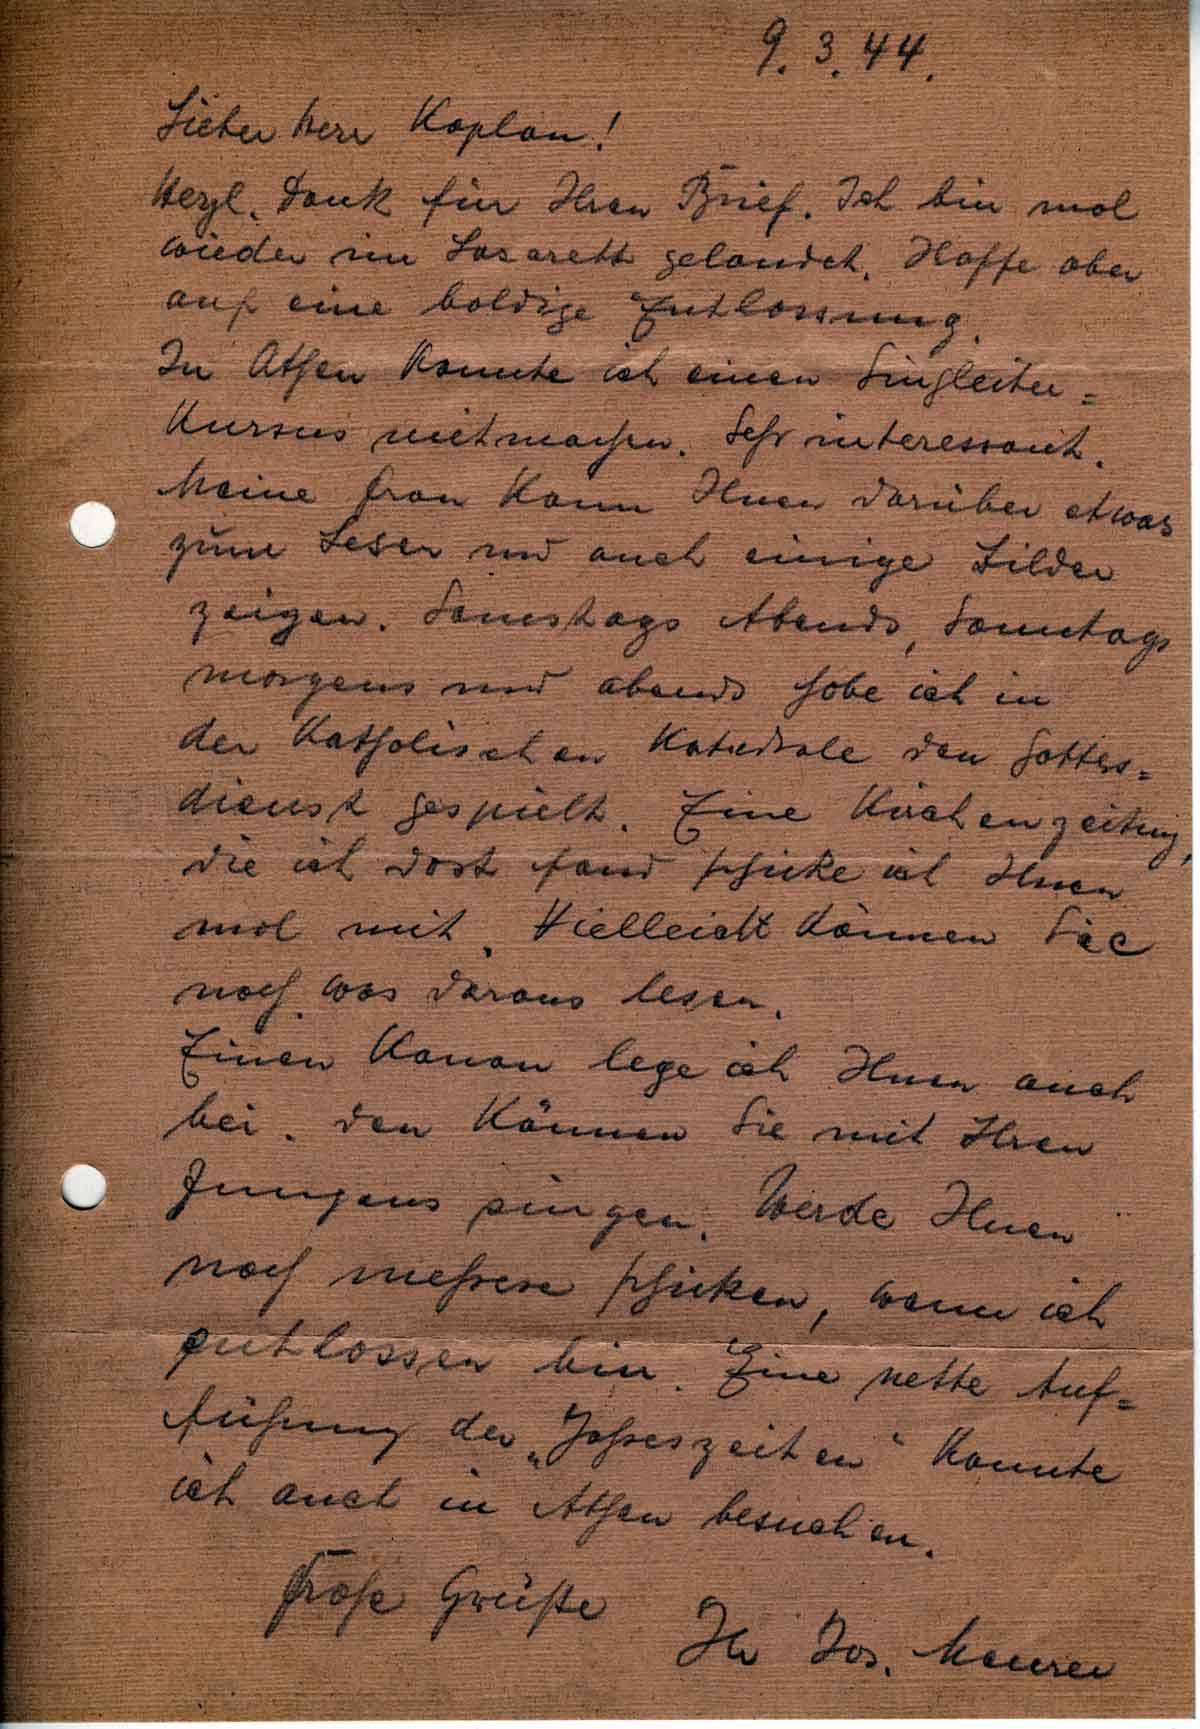 9. 3. 44.
Lieber Herr Kaplan!
Herzl. Dank für Ihren Brief. Ich bin mal
wieder im Lazarett gelandet. Hoffe aber
auf eine baldige Entlassung.
In Athen konnte ich einen Singleiter=
Kursus mitmachen. Sehr interessant.
Meine Frau kann Ihnen darüber etwas
zum Lesen und auch einige Bilder
zeigen. Samstags Abends, Sonntags
morgens und abends habe ich in
der Katholischen Katedrale den Gottes=
dienst gespielt. Eine Kirchenzeitung,
die ich dort fand schicke ich Ihnen
mal mit. Vielleicht können Sie
noch was daraus lesen.
Einen Kanon lege ich Ihnen auch
bei. Den können Sie mit Ihren
Jungens singen. Werde Ihnen
noch mehrere schicken, wenn ich
entlassen bin. Eine nette Auf=
führung der „Jahreszeiten" konnte
ich auch in Athen besuchen.
Frohe Grüße
Ihr Jos. Maurer